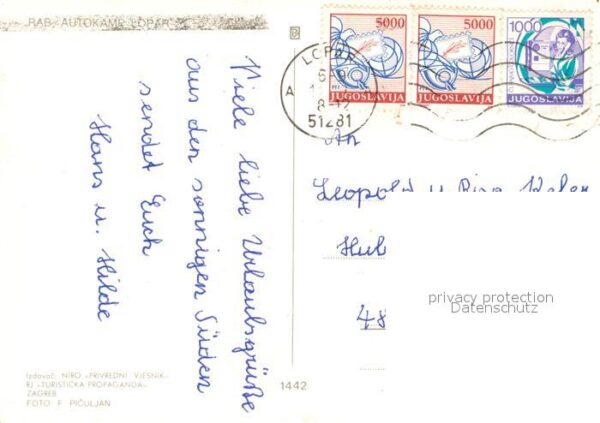 RAB, AUTOKAMP LOPAR
Viele liebe Urlaubsgrüße
aus den sonnigen Süden
sendet Euch
Hans u. Hilde
Izdavač: NIRO »PRIVREDNI VJESNIK«
RJ »TURISTIČKA PROPAGANDA«
ZAGREB
FOTO F. PIČULJAN
1442
5000
JUGOSLAVIJA
5000
JUGOSLAVIJA
1000
JUGOSLAVIJA
LOPAR
A
8-12
51281
An
Leopold u
Hub
48
privacy protection
Datenschutz